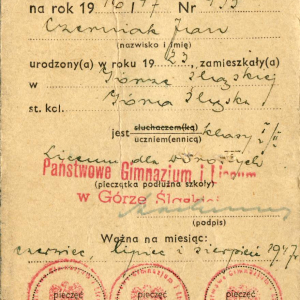 na rok 1946/47 Nr 433
Czerniak Jan
(nazwisko i imię)
urodzony(a) w roku 1923, zamieszkały(a)
w Górze Śląskiej
st. kol. Góra Śląska
jest słuchaczem(ką) klasy I/II
uczniem(ennicą)
Liceum dla Dorosłych
Państwowe Gimnazjum i Liceum
(pieczątka podłużna szkoły)
w Górze Śląskiej
(podpis)
Ważna na miesiąc:
czerwiec, lipiec i sierpień 1947
pieczęć pieczęć pieczęć